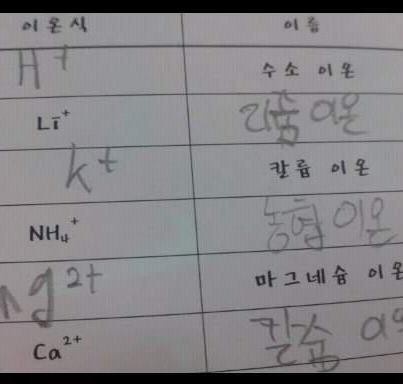 이온식 이름
H⁺ 수소 이온
Li⁺ 리튬 이온
k⁺ 칼륨 이온
NH₄⁺ 농협 이온
Mg²⁺ 마그네슘 이온
Ca²⁺ 칼슘